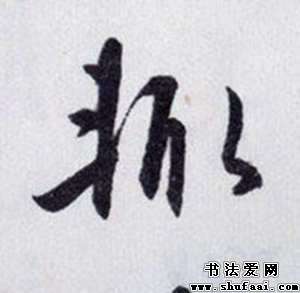 輙
书法爱网
www.shufaai.com